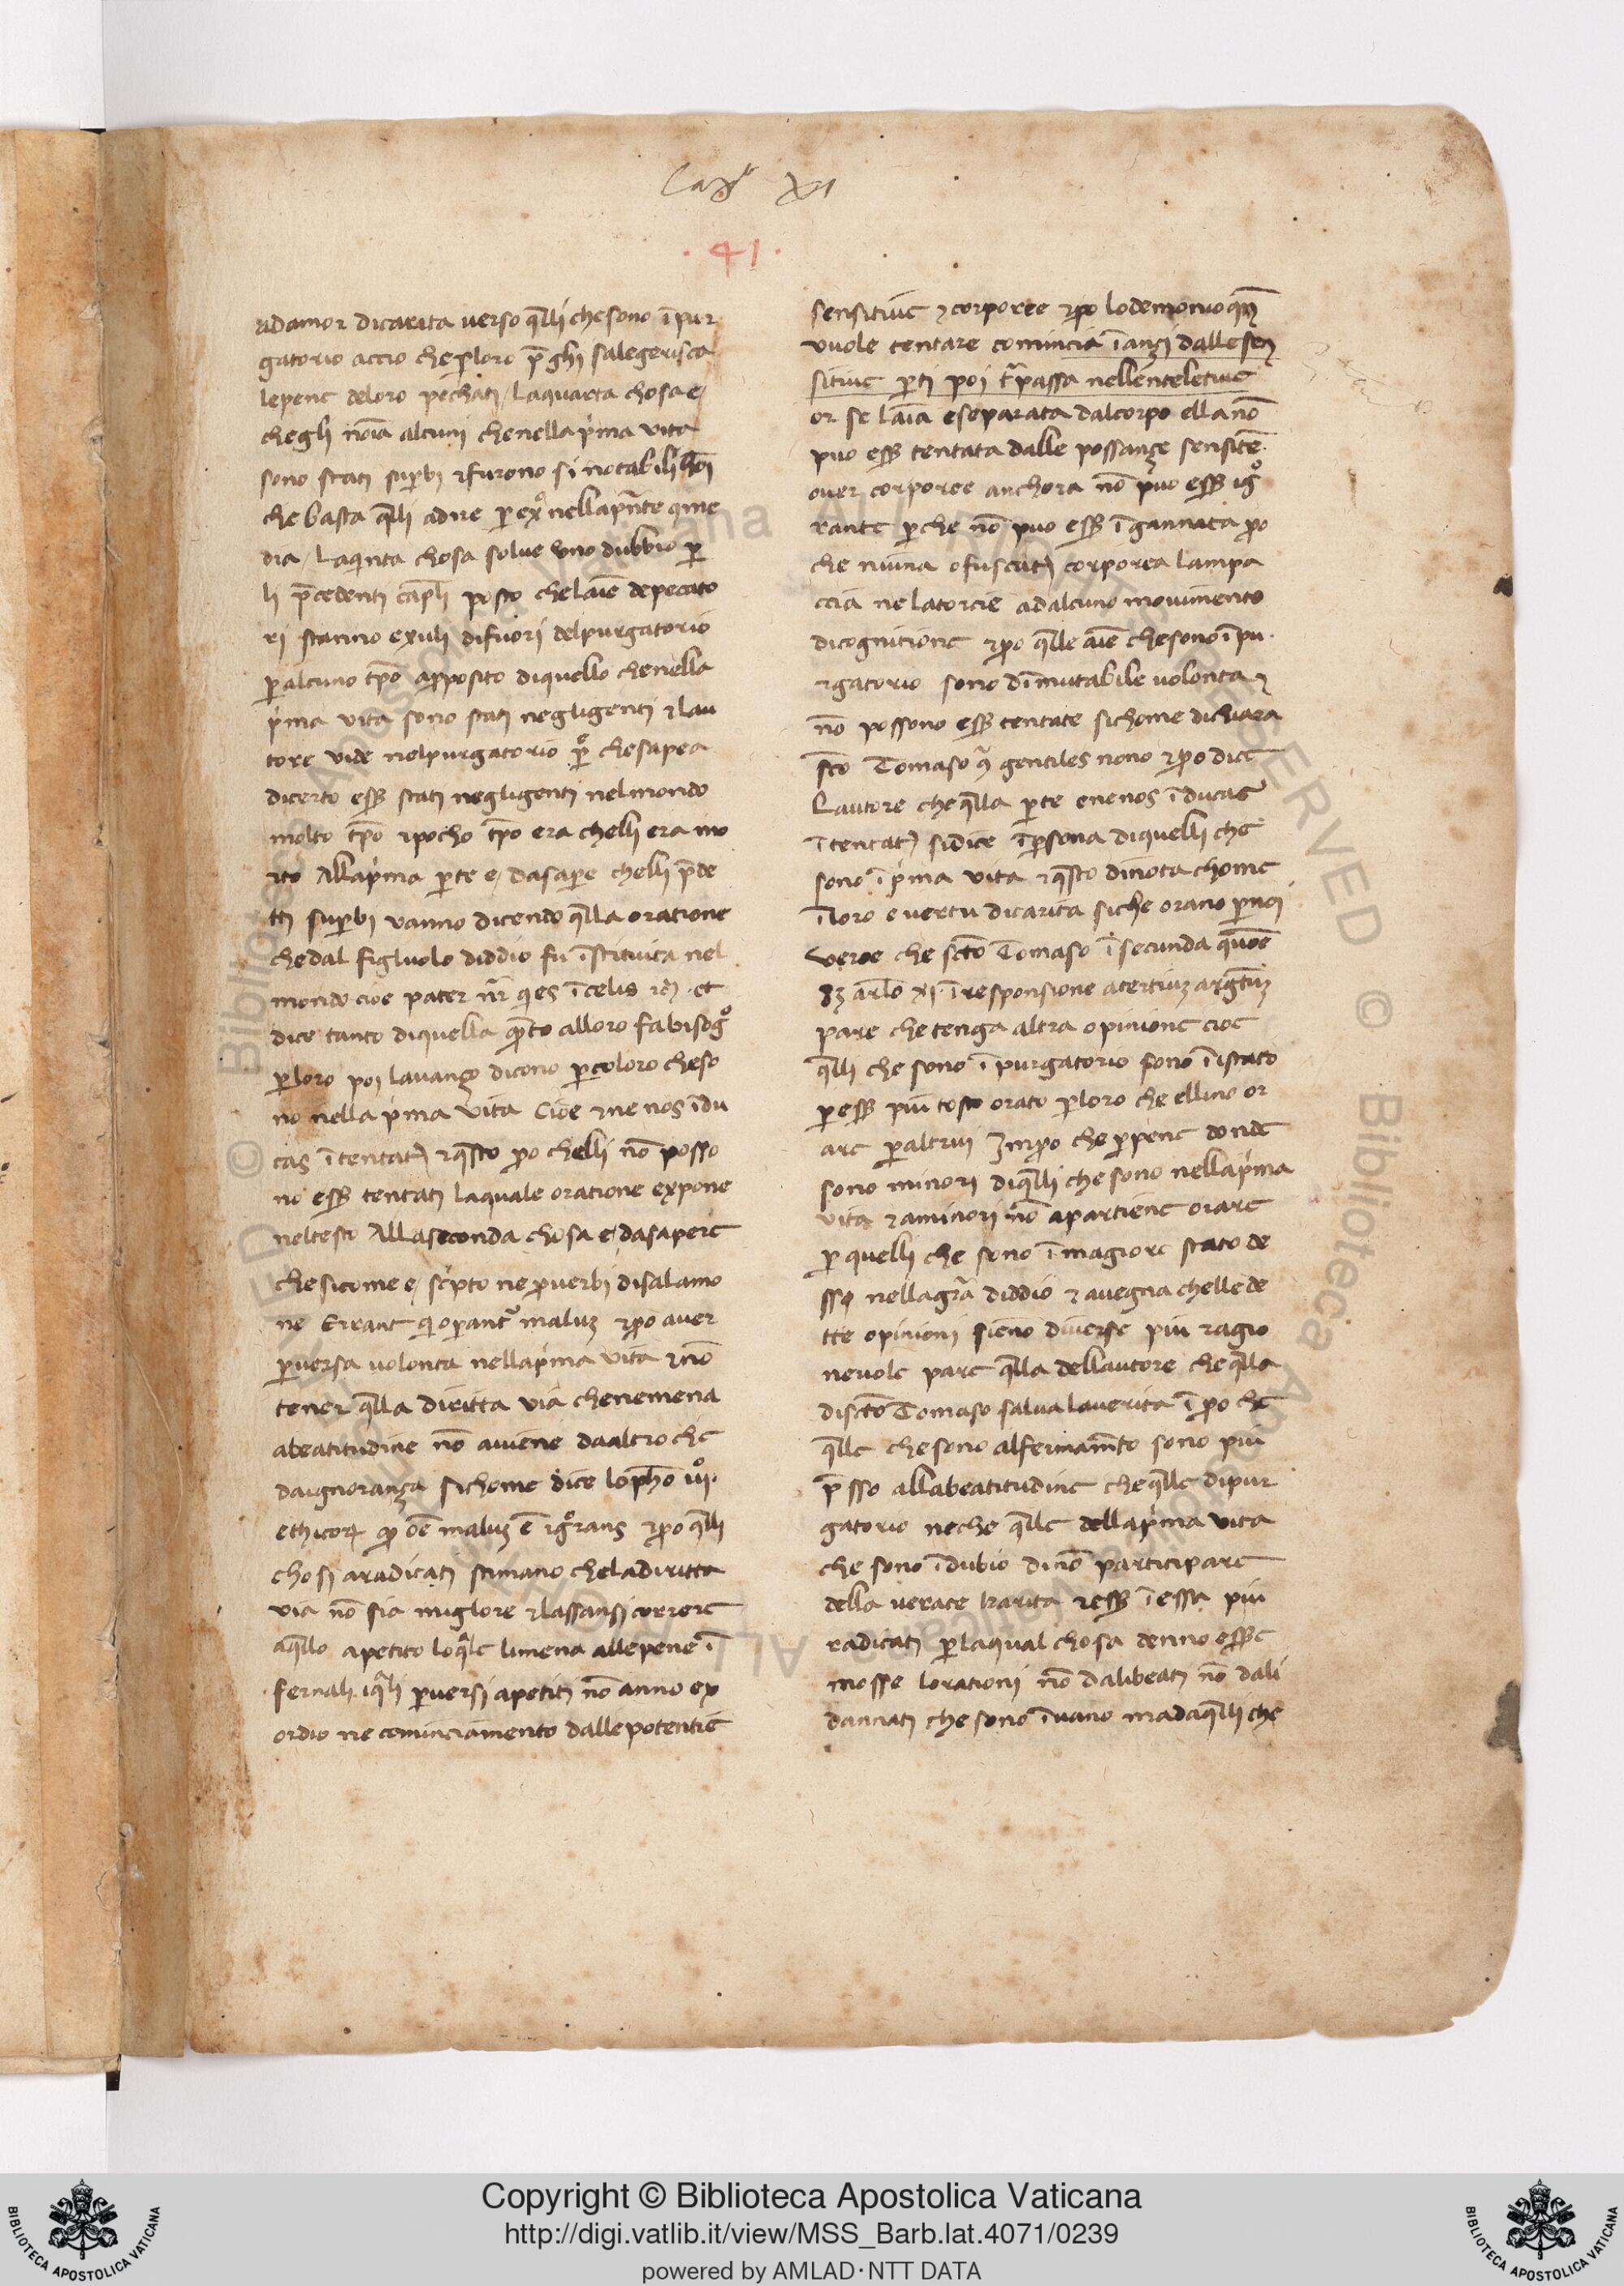 Capo XI
. 41 .
adamor dicarita uerso q̄lli chesono ī pur
gatorio accio che ꝑloro p̄ghi salegerisca
lepene deloro pechati / laquarta chosa e /
chegli noīa alcuni chenella pͥma vita
sono stati suꝑbi ⁊furono si notabili hoī
che basta q̄lli adire ꝑ exº nellapn̄te come
dia / Laqͥnta chosa solue vno dubbio ꝑ
li p̄cedenti cap̄li posto chelaīe depecato
ri stanno exuli difuori delpurgatorio
ꝑalcuno tp̄o apposito diquello chenella
pͥma vita sono stati negligenti ⁊lau
tore vide nelpurgatorio ꝑº chesapea
dicerto eēr stati negligenti nelmondo
molto tp̄o ⁊pocho tp̄o era chelli era mo
rto Allapͥma ꝑte e / dasaꝑe chelli p̄de
tti suꝑbi vanno dicendo q̄lla oratione
chedal figluolo diddio fu īstituita nel
mondo cioe pater nr̄ qͥ es ī celis ⁊c̄. et
dice tanto diquella q̄to alloro fabisogº
ꝑloro poi lauanzo dicono ꝑcoloro cheso
no nella pͥma vita Cioe ⁊ne nos īdu
cas ī tentat̄ ⁊q̄sto ꝑo chelli nō posso
no eēr tentati laquale oratione expone
neltesto Allaseconda chosa e / dasapere
chesicome e / scͥpto ne ꝓuerbi disalamo
ne Errant qͥ oꝑant᷑ maluꝫ ⁊ꝑo auer
ꝑuersa uolonta nellapͥma vita ⁊nō
tener q̄lla diritta via chenemena
abeatitudine nō auiene daaltro che
daignoranza sichome dice loph̄o iiiº.
ethicoꝝ qꝫ oē maluꝫ ē igºrans ⁊ꝑo q̄lli
chosi aradicati stimano cheladiritta
via nō sia miglore ⁊lassansi correre
aq̄llo apetito loq̄le limena allepene ī
fernali. iq̄li ꝑuersi apetiti nō anno ex
ordio ne cominciamento dallepotentie
sensitiue ⁊corporee ⁊ꝑo lodemonio qn̄
vuole tentare comincia īanzi dallesen
sitiue ꝑti poi tᷓpassa nellenteletiue
or se laīa eseparata dalcorpo ella nō
puo eēr tentata dalle possanze sensite
ouer corporee anchora nō puo eēr igº
rante ꝑche nō puo eēr īgannata ꝑo
che niuna ofuscat̄ corporea lampa
ccia nelatorcie adalcuno mouimento
dicognitione ⁊ꝑo q̄lle aīe chesono ī pu.
rgatorio sono dīmutabile uolonta ⁊
nō possono eēr tentate sichome dichiara
sc̄o Tomaso qͣ gentiles nono ⁊ꝑo dice
Lautore cheq̄lla ꝑte enenos īducas
ī tentat̄ sidice ī ꝑsona diquelli che
sono ī pͥma vita ⁊q̄sto dinota chome
ī loro e vertu dicarita siche orano ꝑnoi
Veroe che sc̄o Tomaso ī secunda qͣōe
83 arl̄o XI. ī responsione atertiuꝫ argtūꝫ
pare chetenga altra opinione cioe
q̄lli che sono ī purgatorio sono ī istato
ꝑ eēr piu tosto orato ꝑloro che ellino or
are ꝑaltrui Imꝑo che ꝑpene donde
sono minori diq̄lli che sono nellapͥma
vita ⁊aminori nō apartiene orare
ꝑ quelli che sono ī magiore stato de
sso nellagrā diddio ⁊ auegna chellede
tte opinioni sieno diuerse piu ragio
neuole pare q̄lla dellautore cheq̄lla
disc̄to Tomaso salua lauerita ī ꝑo che
q̄lle chesono alfermam̄to sono piu
p̄sso allabeatitudine cheq̄lle dipur
gatorio neche q̄lle dellapͥma vita
che sono īdubio dinō participare
della uerace karita ⁊eēr ī essa piu
radicati ꝑlaqual chosa denno eēre
mosse lorationi nō dalibeati nō dali
dannati che sono īuano madaq̄lli che